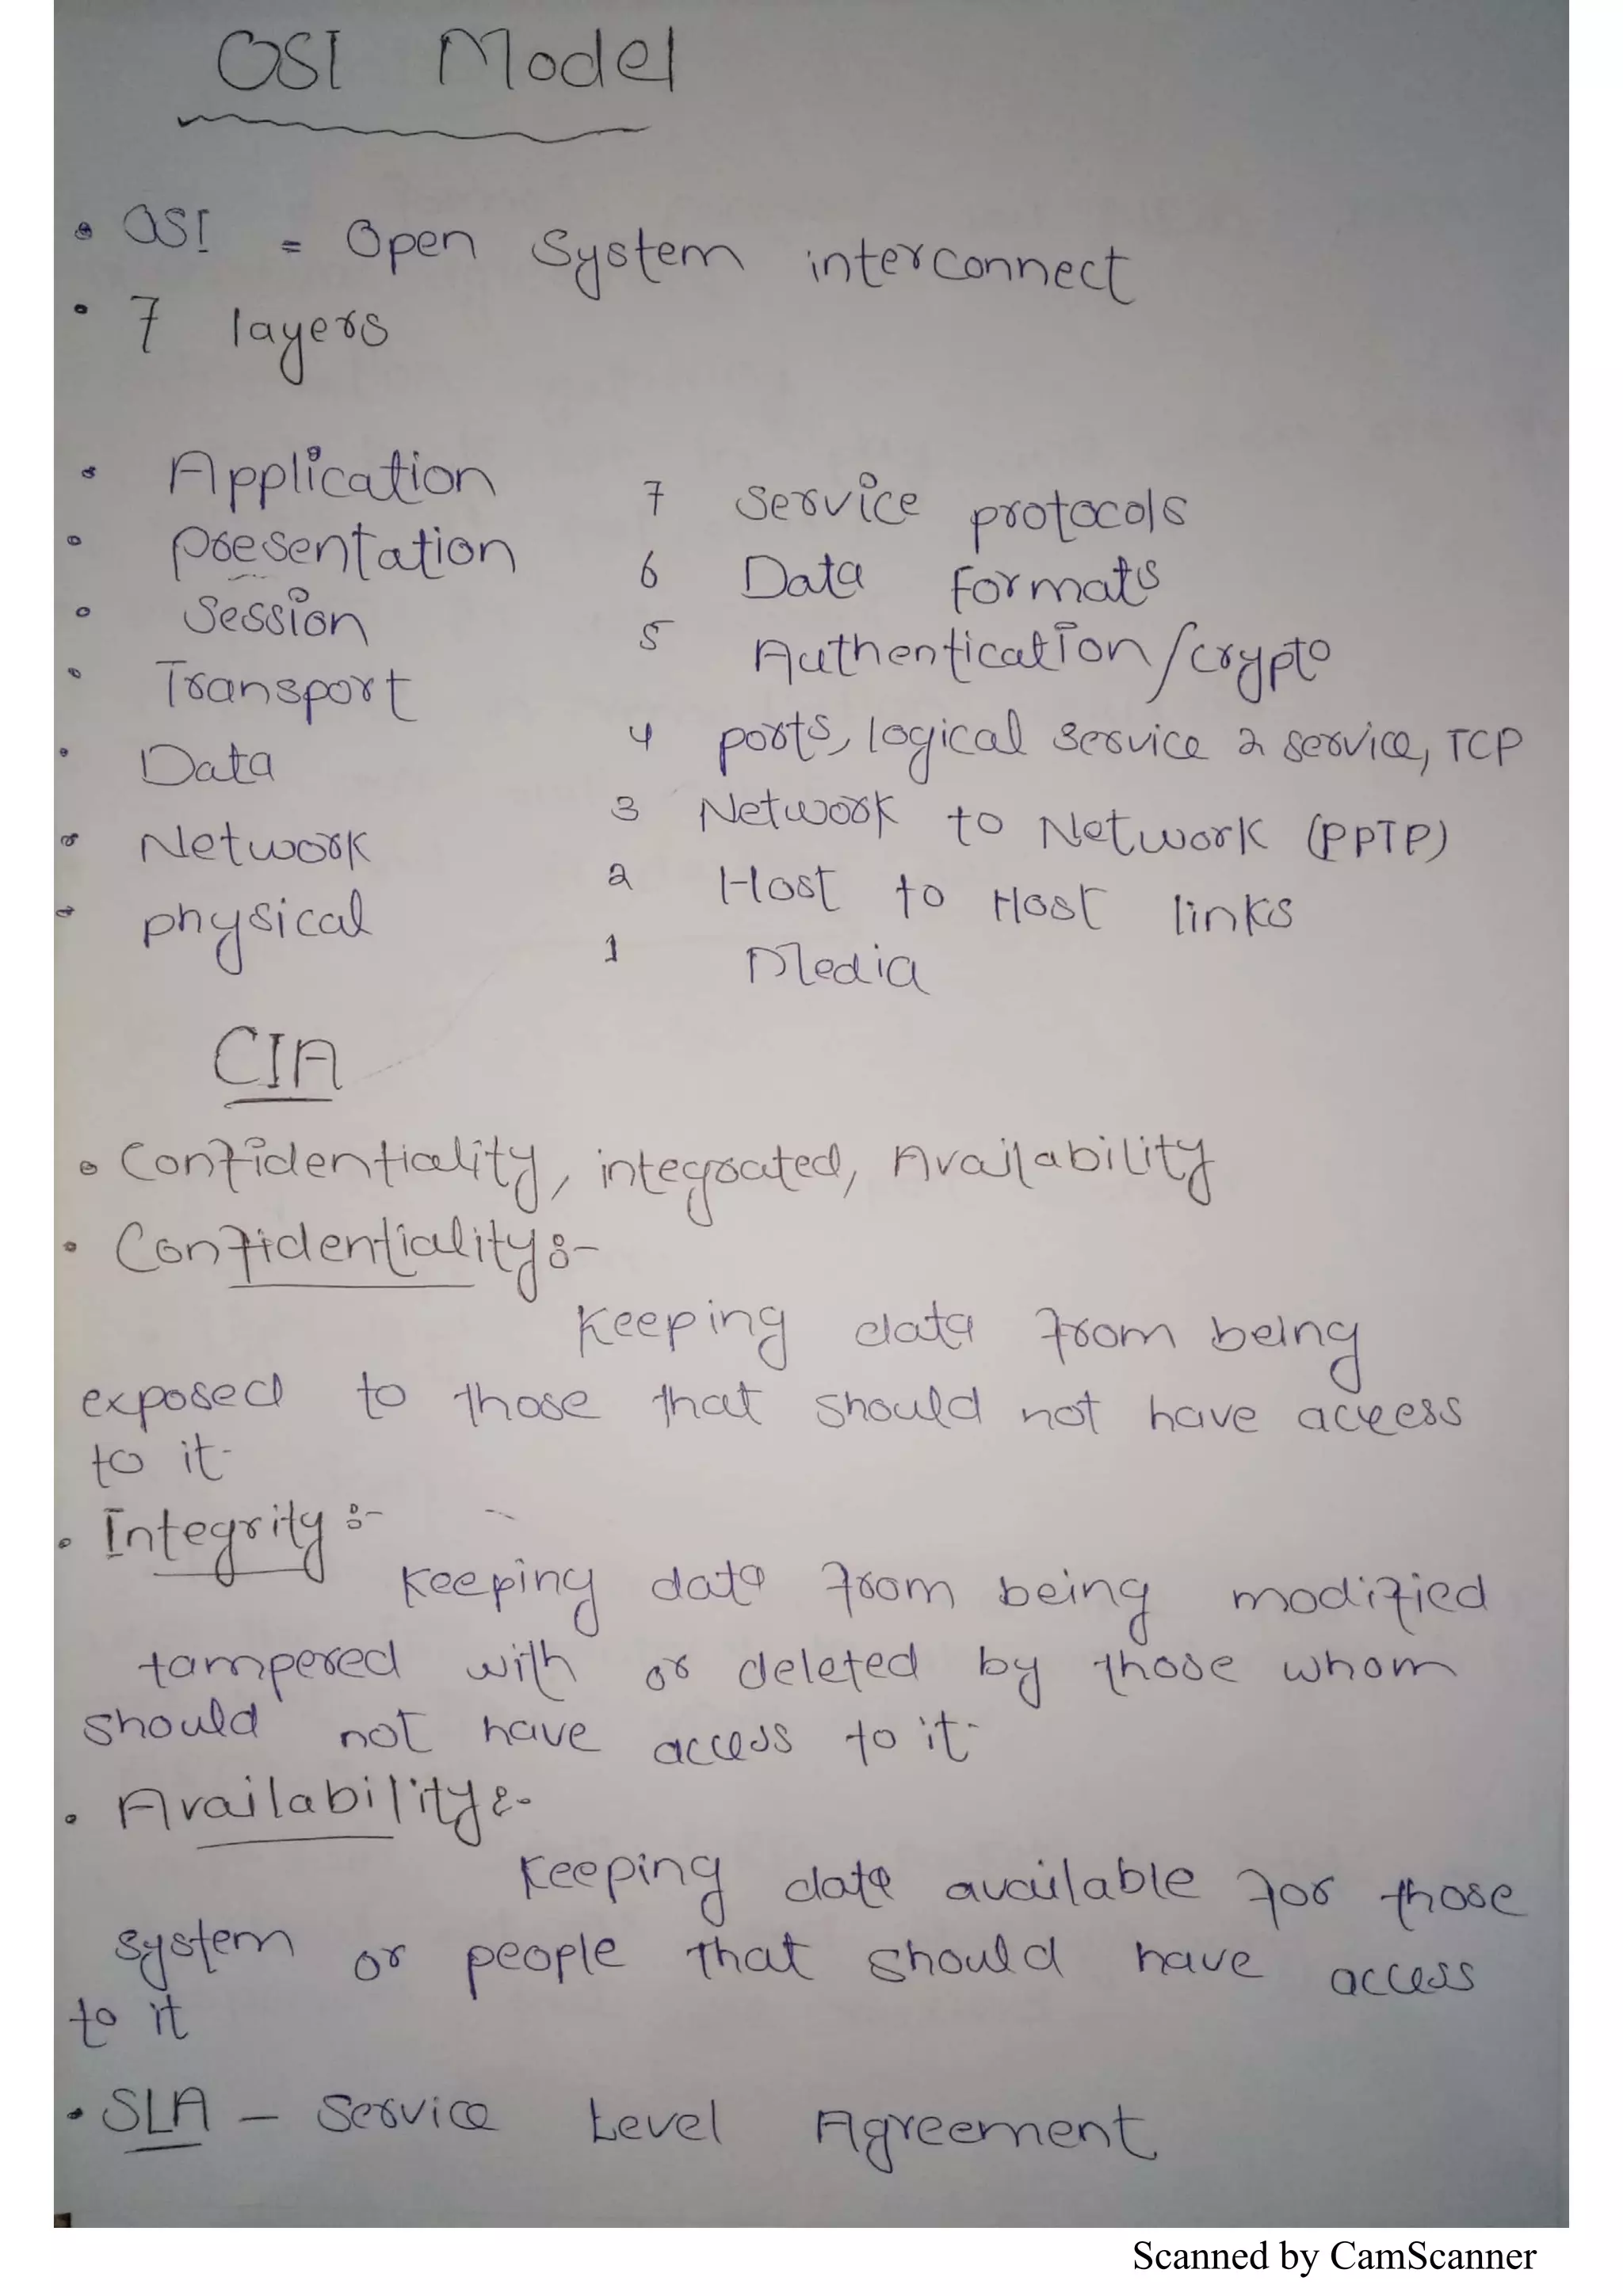 OSI Model
• OSI = Open System interconnect
• 7 layers
• Application 7 Service protocols
• presentation 6 Data Formats
• Session 5 Authentication/crypto
• Transport 4 ports, logical service 2 service, TCP
• Data 3 Network to Network (PPTP)
• Network 2 Host to Host links
• physical 1 Media
CIA
• Confidentiality, integrated, Availability
• Confidentiality:-
Keeping data from being
exposed to those that should not have access
to it.
• Integrity:-
Keeping data from being modified
tampered with or deleted by those whom
should not have access to it.
• Availability:-
Keeping data available for those
system or people that should have access
to it
• SLA - Service Level Agreement
Scanned by CamScanner